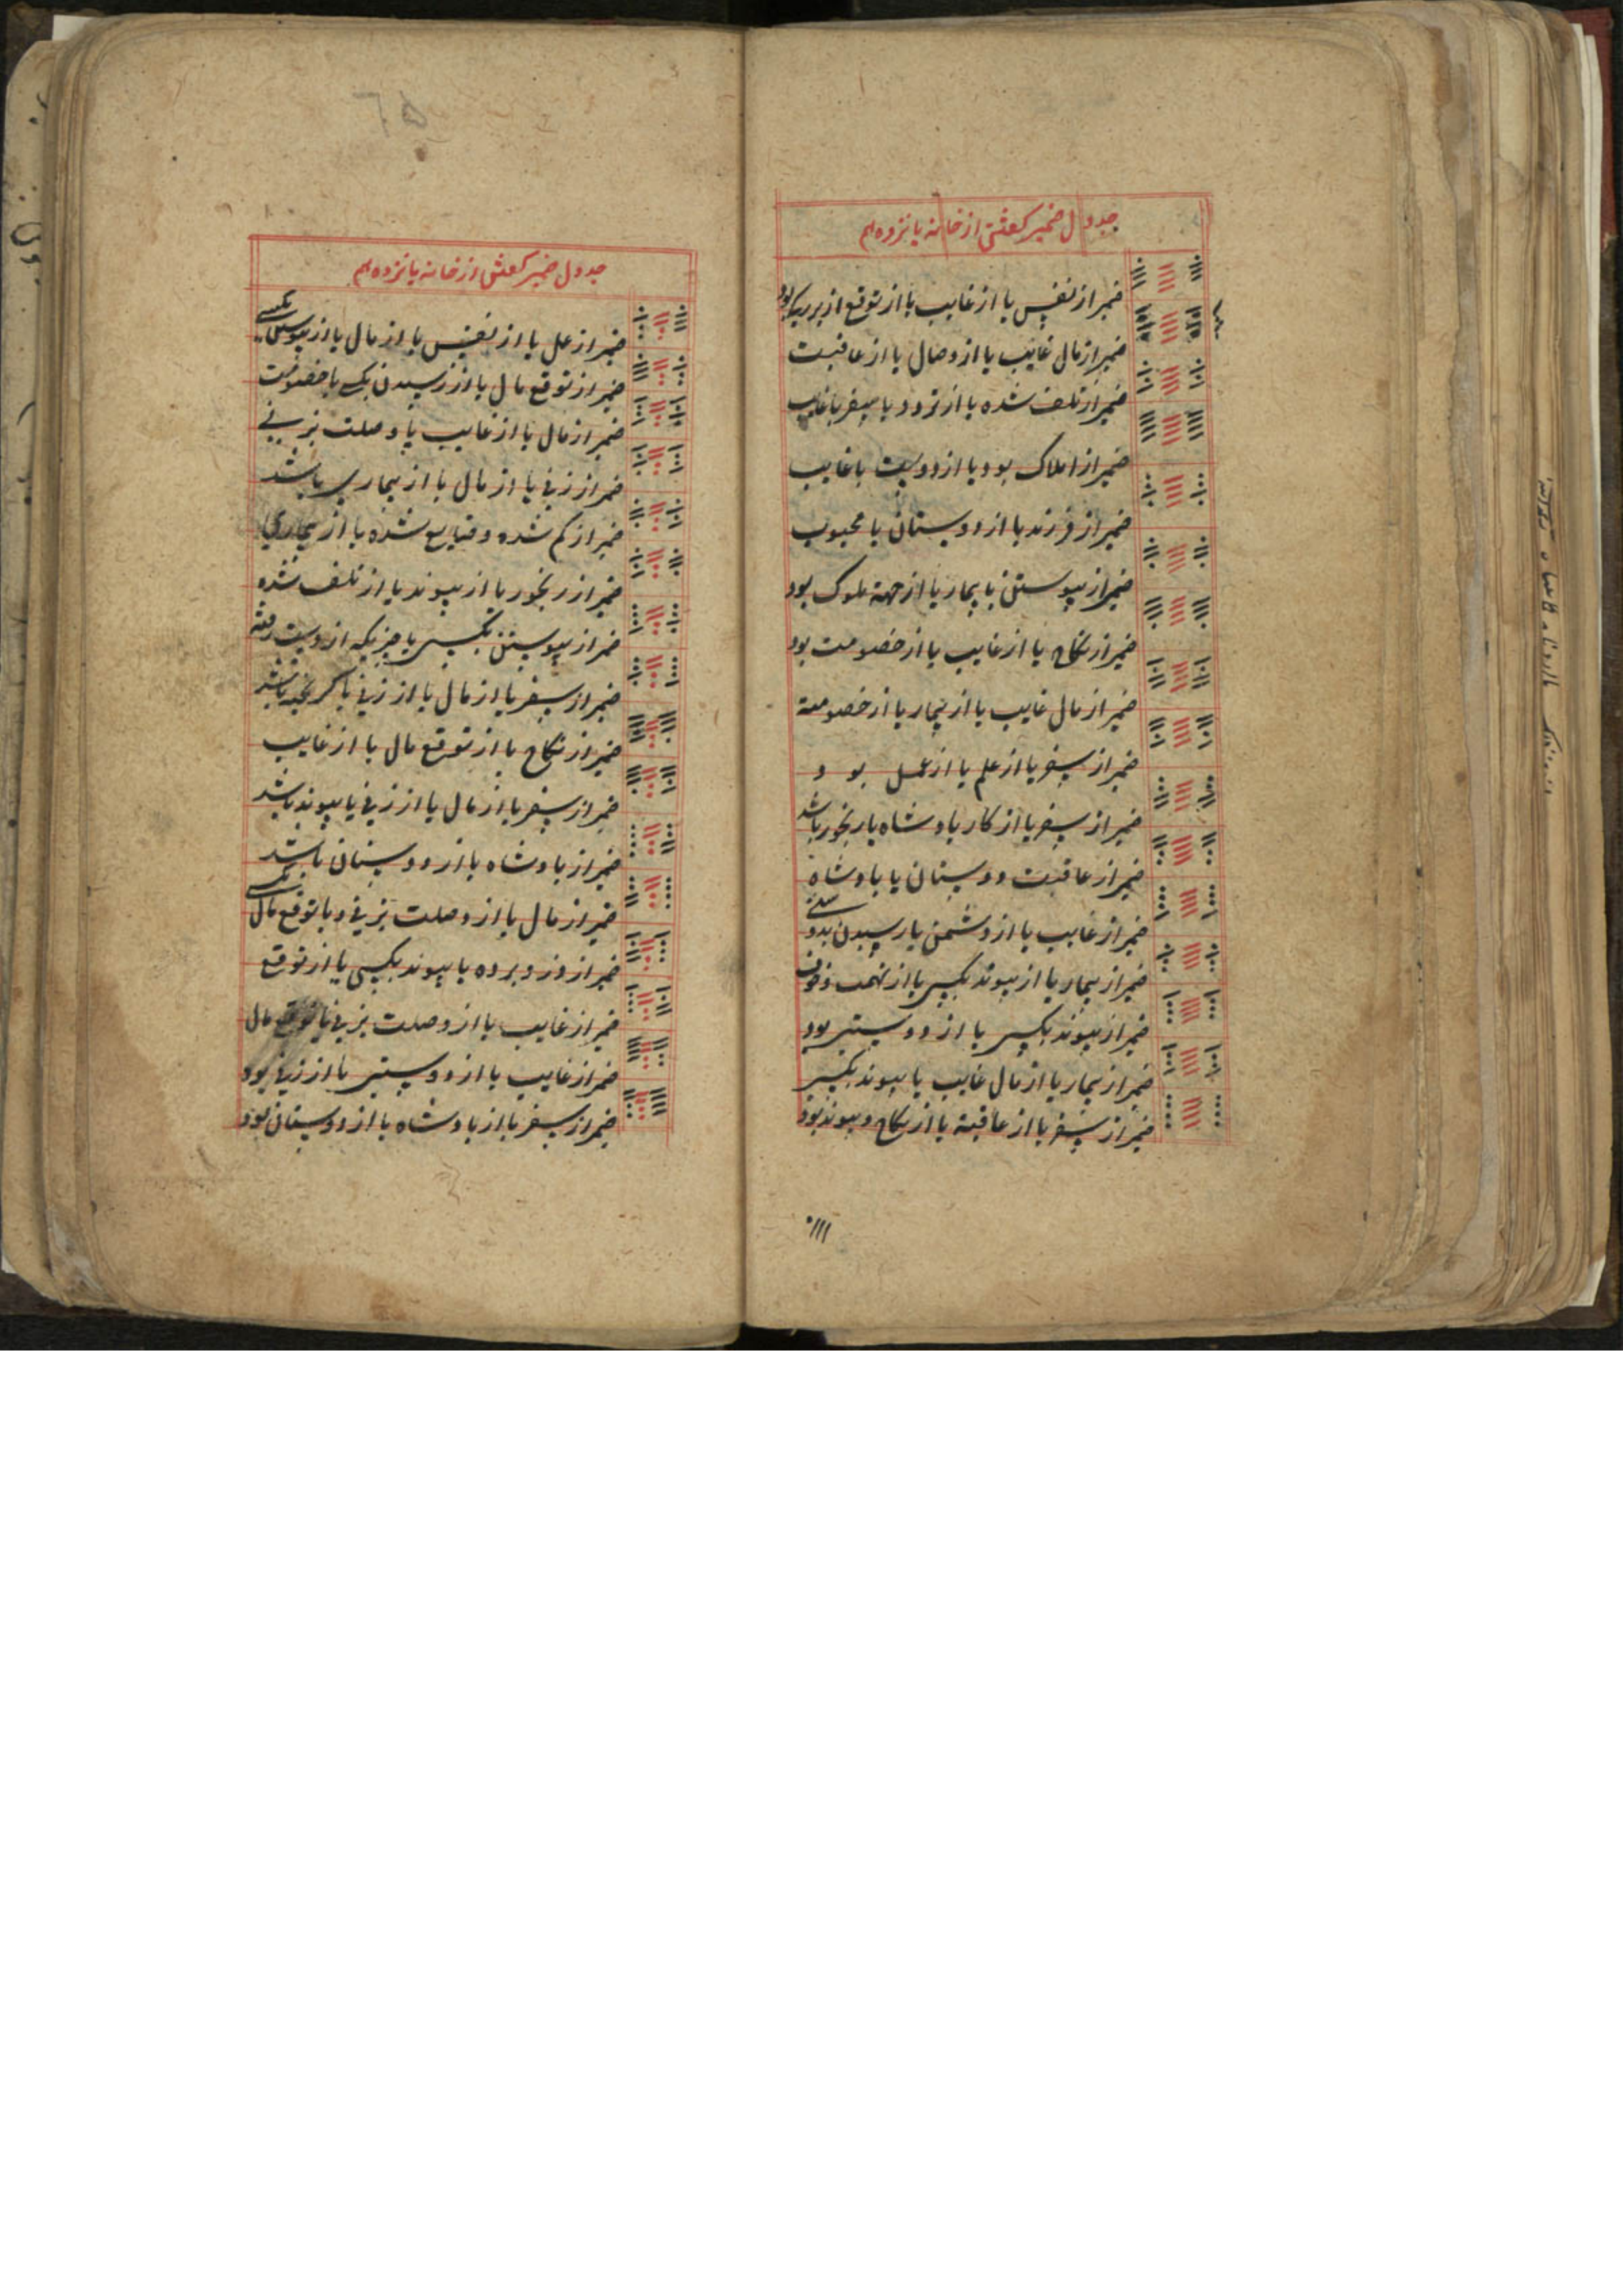 جدول ضمیر گفتن از خانه پانزدهم
ضمیر از نفس یا از غایب یا از توقع از بر یکی بود
ضمیر از مال غایب یا از وصال یا از عاقبت
ضمیر از تلف شده یا از تردد یا سفر یا غایب
ضمیر از املاک بود یا از دوست یا غایب
ضمیر از فرزند یا از دوستان یا محبوب
ضمیر از پیوستن یا بیمار یا از جهة ملوک بود
ضمیر از نکاح یا از غایب یا از خصومت بود
ضمیر از مال غایب یا از بیمار یا از خصومة
ضمیر از سفر یا از علم یا از عمل بود
ضمیر از سفر یا از کار پادشاه یا رنجور باشد
ضمیر از عاقبت دوستان یا پادشاه
ضمیر از غایب یا از دشمن یا رسیدن بدو
ضمیر از بیمار یا از پیوند بکسی یا از تهمت و خون
ضمیر از پیوند بکسی یا از دوستی بود
ضمیر از بیمار یا از مال غایب یا پیوند بکسی
ضمیر از سفر یا از عاقبة یا از نکاح و پیوند بود
جدول ضمیر گفتن از خانه پانزدهم
ضمیر از عمل یا از نفس یا از مال یا از پیوستن بکسی
ضمیر از توقع مال یا از رسیدن یکی یا خصومت
ضمیر از مال یا از غایب یا وصلت بزنی
ضمیر از زنی یا از مال یا از بیماری باشد
ضمیر از گم شده و ضایع شده یا از بیماری
ضمیر از رنجور یا از پیوند یا از تلف شده
ضمیر از پیوستن بکسی یا چیزیکه از دست رفته
ضمیر از سفر یا از مال یا از زنی یا گریخته باشد
ضمیر از نکاح یا از توقع مال یا از غایب
ضمیر از سفر یا از مال یا از زنی یا پیوند باشد
ضمیر از پادشاه یا از دوستان باشد
ضمیر از مال یا از وصلت بزنی و یا توقع مال
ضمیر از دزد برده یا پیوند بکسی یا از توقع
ضمیر از غایب یا از وصلت بزنی یا توقع مال
ضمیر از غایب یا از دوستی یا از زنی بود
ضمیر از سفر یا از پادشاه یا از دوستان بود